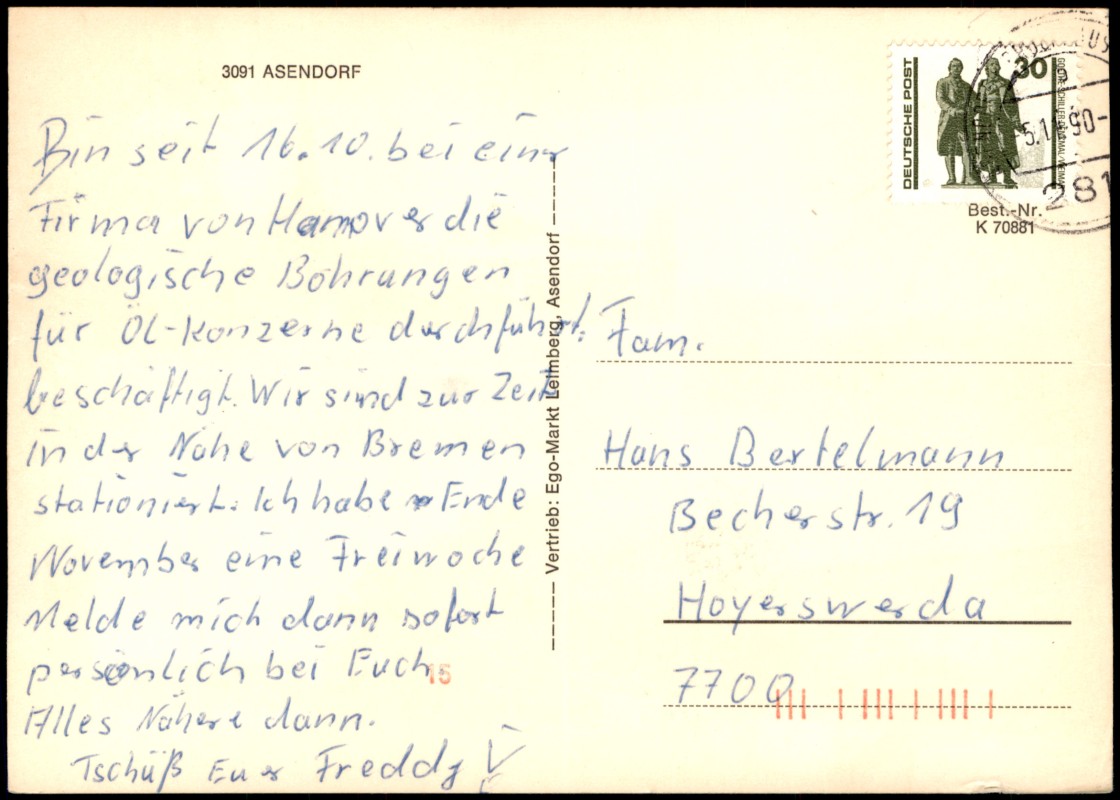 3091 ASENDORF
Bin seit 16.10. bei einer
Firma von Hannover die
geologische Bohrungen
für Öl-Konzerne durchführt.
beschäftigt. Wir sind zur Zeit
in der Nähe von Bremen
stationiert. Ich habe Ende
November eine Freiwoche
Melde mich dann sofort
persönlich bei Euch
Alles Nähere dann.
Tschüß Euer Freddy
15
Vertrieb: Ego-Markt Leimberg, Asendorf
DEUTSCHE POST
30
GOETHE-SCHILLER-DENKMAL/WEIMAR
5.11.90-
281
Best.-Nr.
K 70881
Fam.
Hans Bertelmann
Becherstr. 19
Hoyerswerda
7700